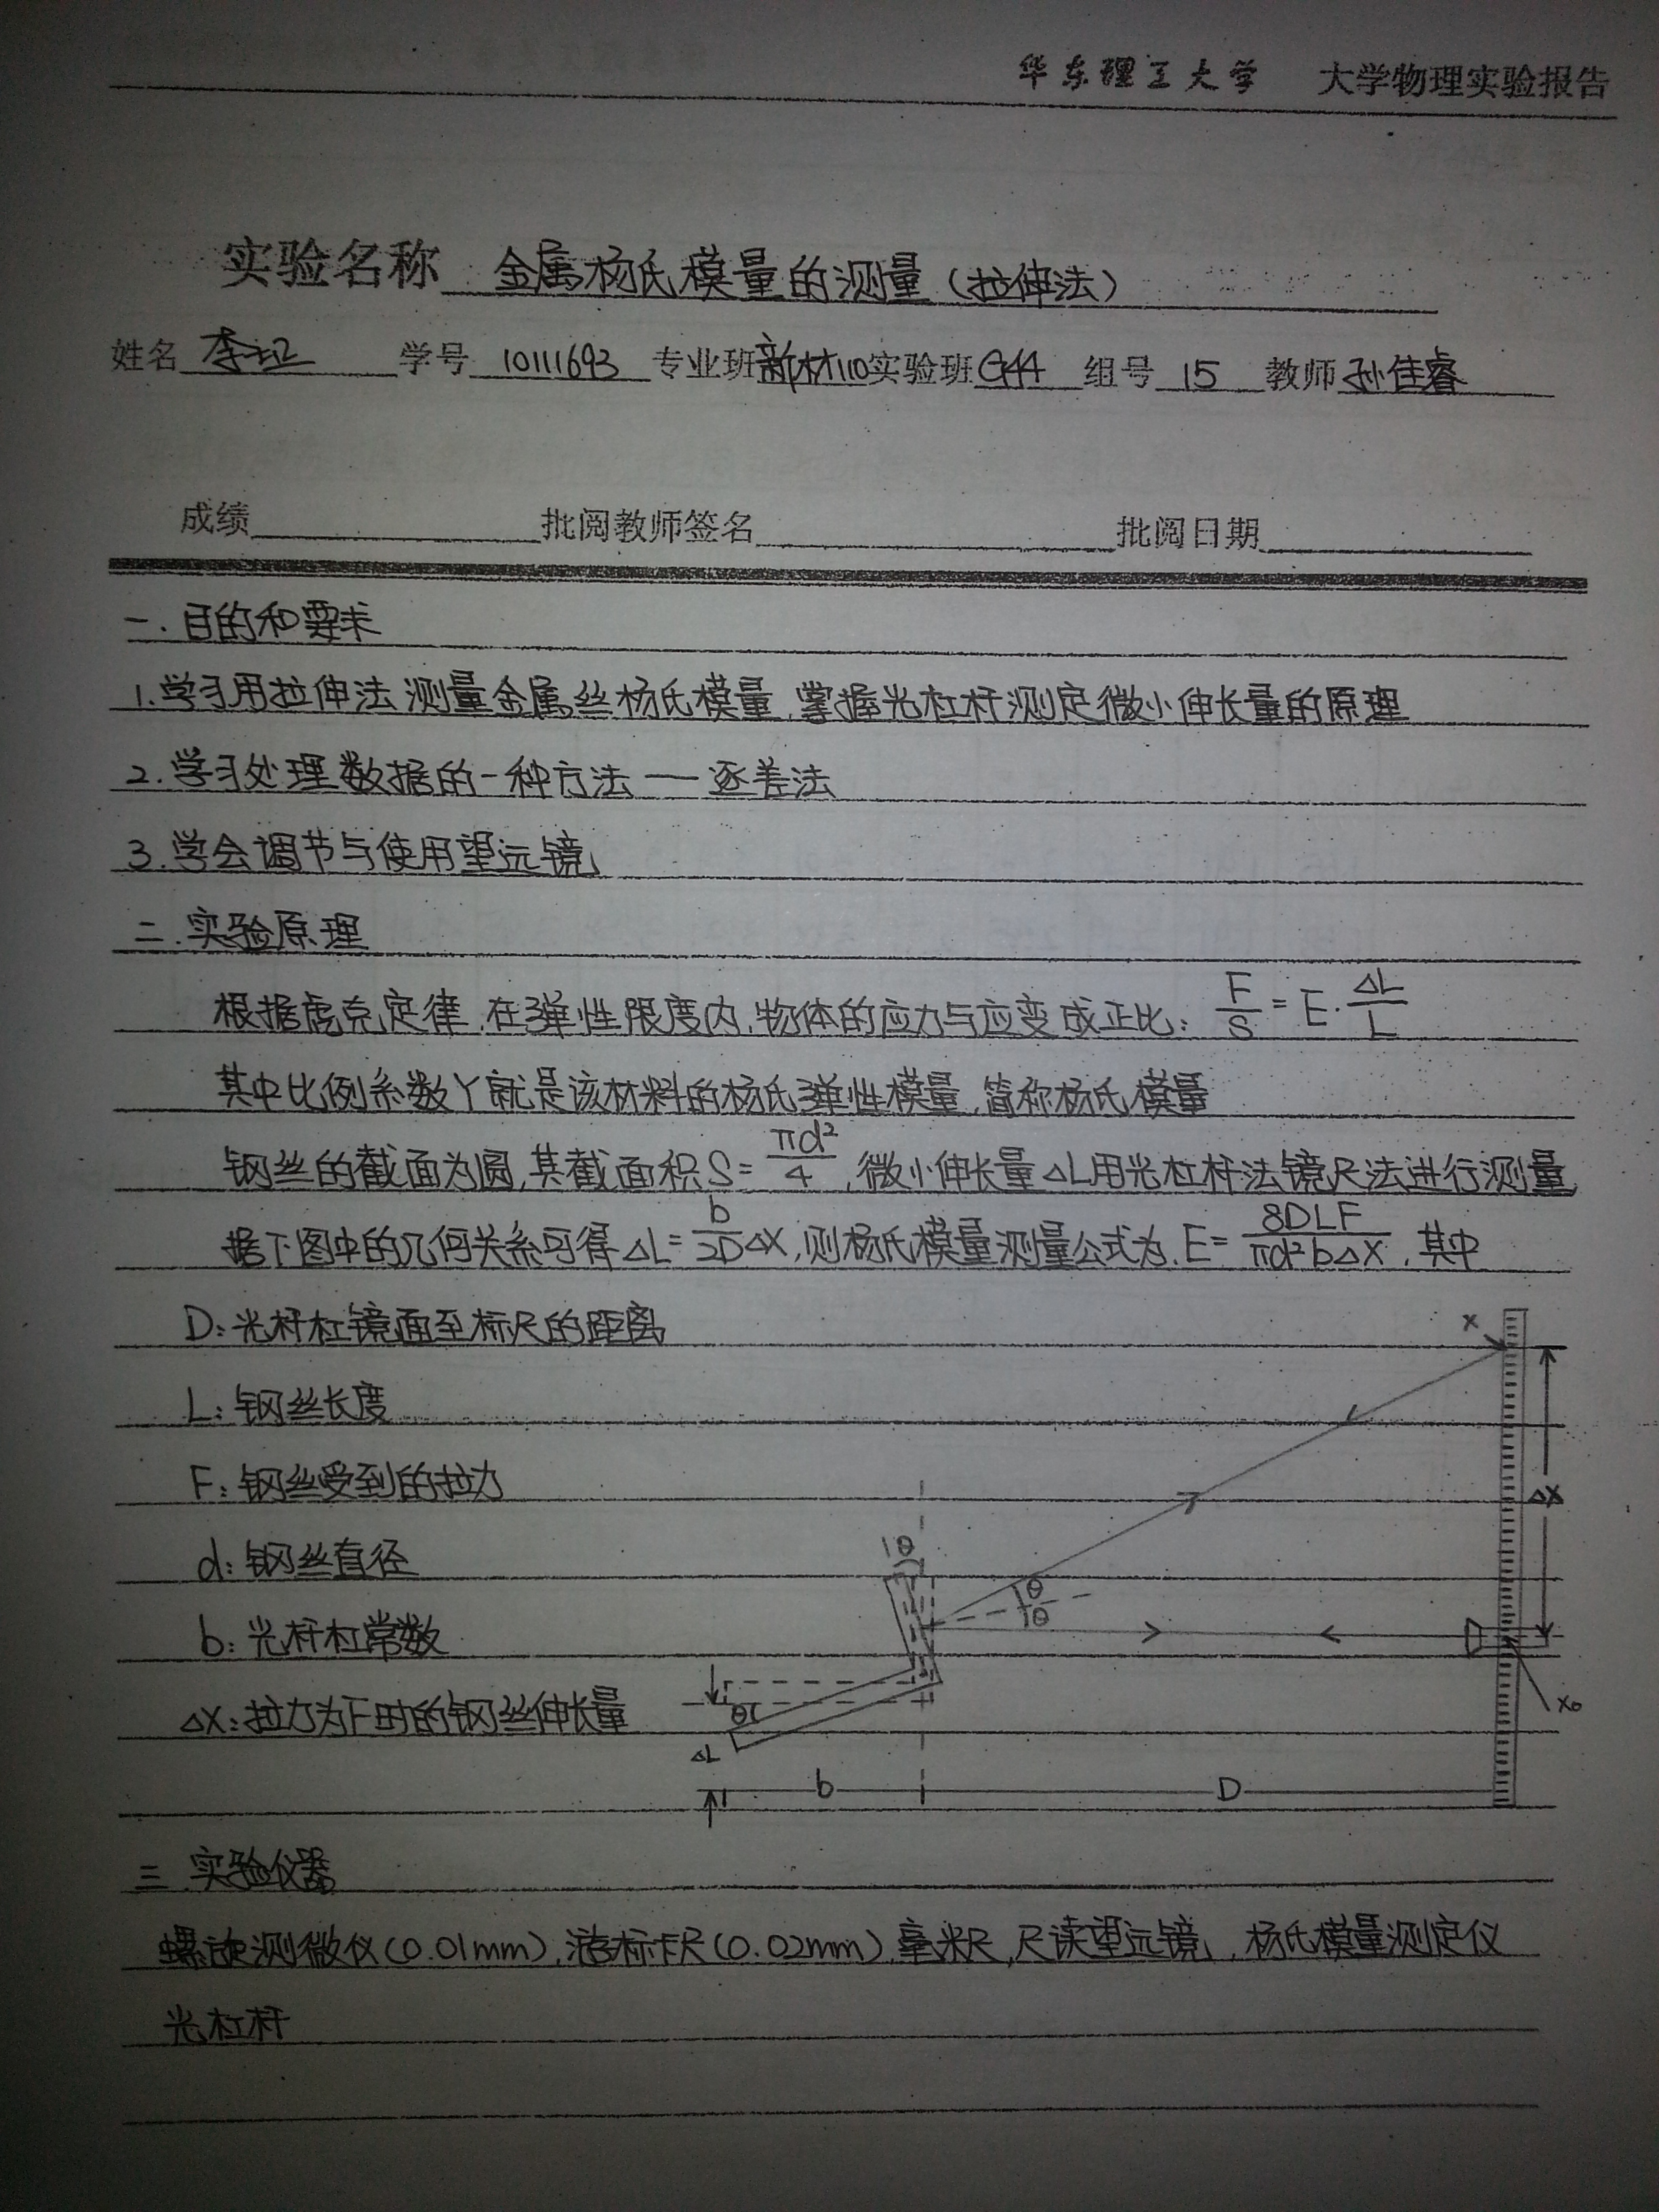 华东理工大学 大学物理实验报告
实验名称 金属杨氏模量的测量(拉伸法)
姓名 李 学号 10111693 专业班 新材110 实验班 G44 组号 15 教师 孙佳睿
成绩 批阅教师签名 批阅日期
一.目的和要求
1.学习用拉伸法测量金属丝杨氏模量,掌握光杠杆测定微小伸长量的原理
2.学习处理数据的一种方法——逐差法
3.学会调节与使用望远镜
二.实验原理
根据虎克定律,在弹性限度内,物体的应力与应变成正比: F/S = E·ΔL/L
其中比例系数Y就是该材料的杨氏弹性模量,简称杨氏模量
钢丝的截面为圆,其截面积S=πd²/4,微小伸长量ΔL用光杠杆法镜尺法进行测量
据下图中的几何关系可得ΔL=b/2D ΔX,则杨氏模量测量公式为,E=8DLF/πd²bΔX,其中
D:光杆杠镜面至标尺的距离
L:钢丝长度
F:钢丝受到的拉力
d:钢丝直径
b:光杆杠常数
ΔX:拉力为F时的钢丝伸长量
X
ΔX
θ
θ
θ
X₀
θ
ΔL
b
D
三.实验仪器
螺旋测微仪(0.01mm),游标卡尺(0.02mm),毫米尺,尺读望远镜,杨氏模量测定仪
光杠杆